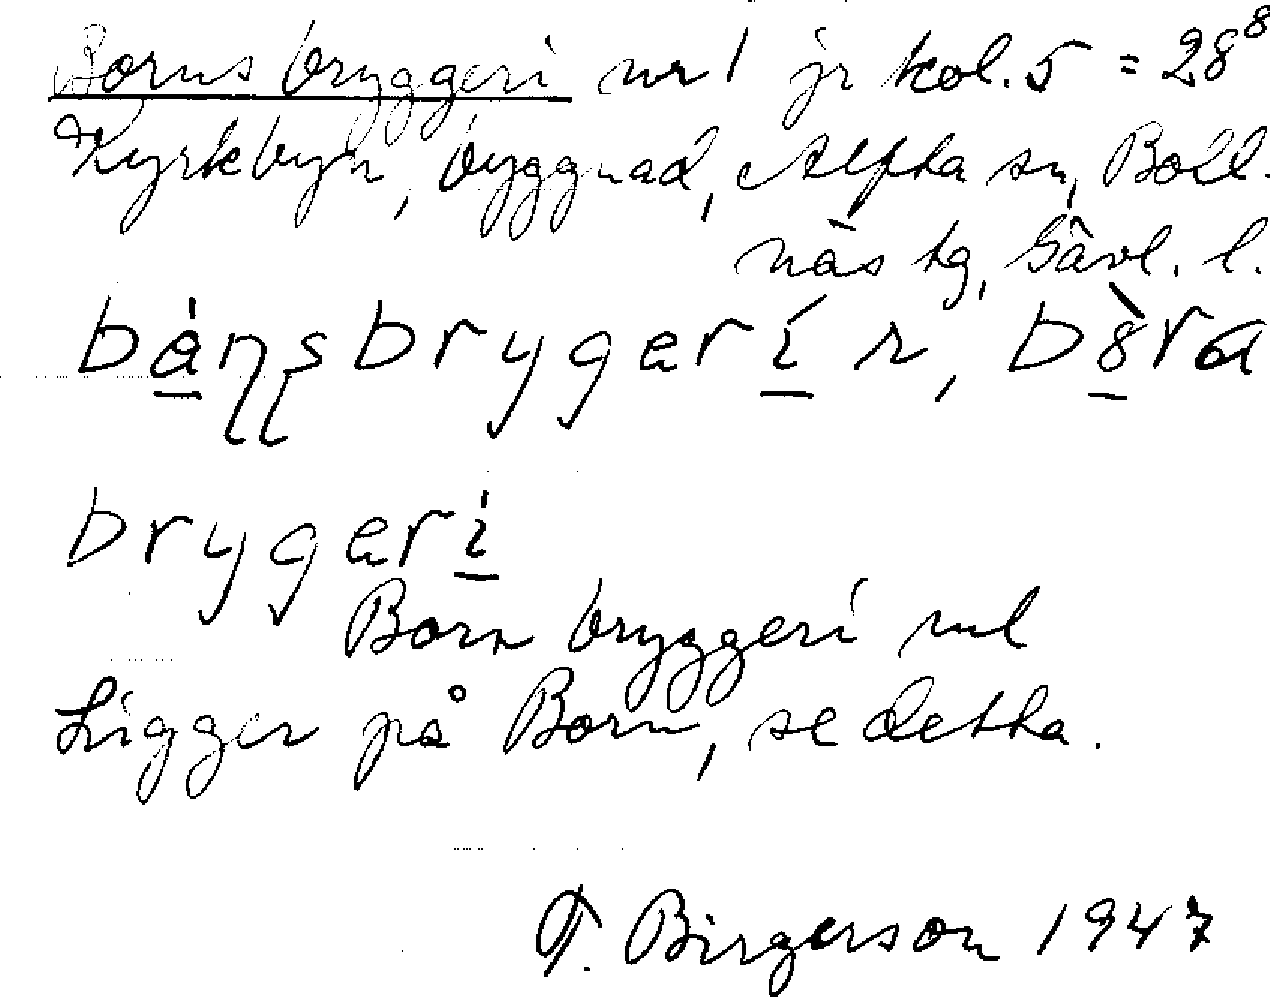 Borns bryggeri nr 1 jr kol. 5 = 28⁸
Kyrkbyn, byggnad, Alfta sn, Boll-
näs tg, Gävl. l.
brygeri
Born bryggeri
Ligger på Born, se detta.
T. Birgerson 1947